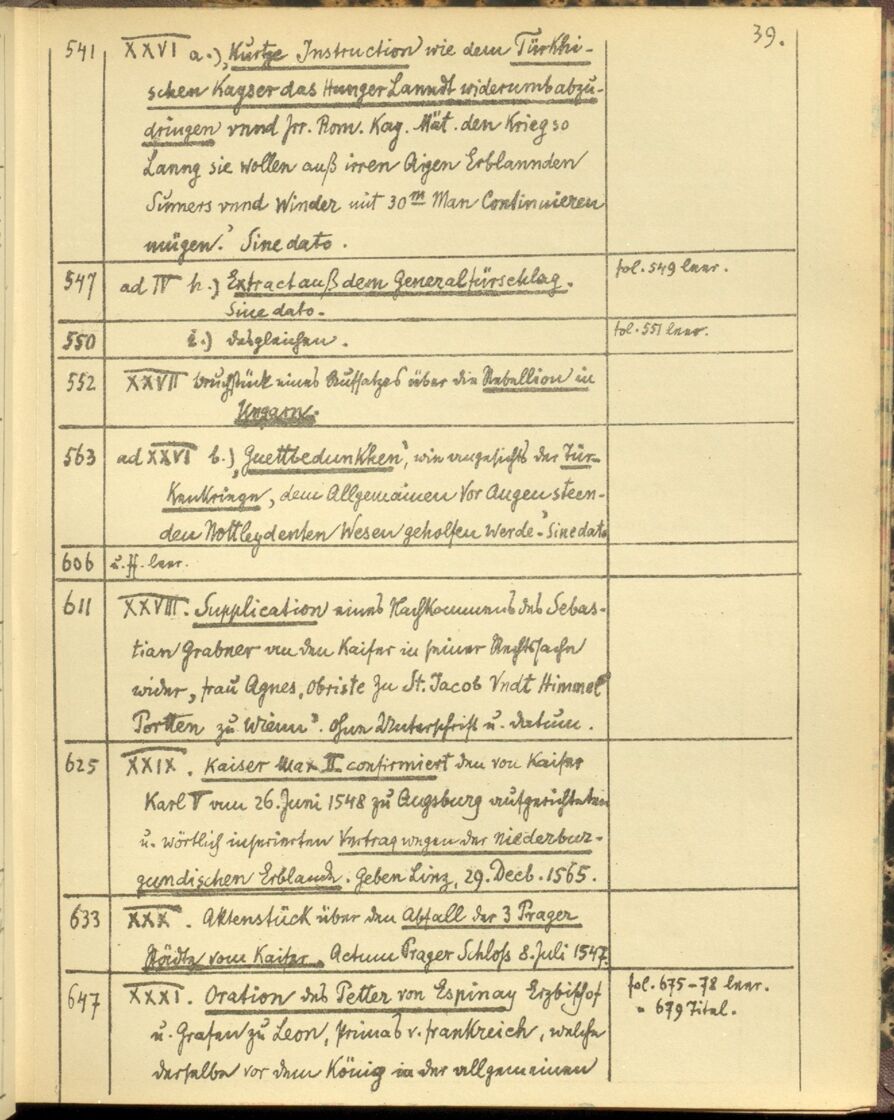 39.
541 XXVI a.) „Kurtze Instruction wie dem Türkhi-
schen Kayser das Hunger Lanndt widerumb abzu-
dringen vnnd Irr. Röm. Kay. Mät. den Krieg so
Lanng sie wollen auß irren Aigen Erblannden
Sumers vnnd Winder mit 30m Man Continuieren
mügen." Sine dato.
547 ad IV h.) Extract auß dem Generalfürschlag. fol. 549 leer.
Sine dato.
550 i.) desgleichen. fol. 551 leer.
552 XXVII Bruchstück eines Aufsatzes über die Rebellion in
Ungarn.
563 ad XXVI b.) „Guettbedunkhen", wie angesichts der Tür-
kenkriege, „dem Allgemainen Vor Augen steen-
den Nottleydenten Wesen geholfen werde." Sine dato
606 u. ff. leer.
611 XXVIII. Supplication eines Nachkommens des Sebas-
tian Grabner an den Kaiser in seiner Rechtssache
wider „frau Agnes, Obriste zu St. Jacob Vndt Himmel
Portten zu Wienn". Ohne Unterschrift u. Datum.
625 XXIX. Kaiser Max II. confirmiert den von Kaiser
Karl V am 26. Juni 1548 zu Augsburg aufgerichteten
u. wörtlich inserierten Vertrag wegen der niederbur-
gundischen Erblande. Geben Linz, 29. Decb. 1565.
633 XXX. Aktenstück über den Abfall der 3 Prager
Städte vom Kaiser. Actum Prager Schloß 8. Juli 1547.
647 XXXI. Oration des Petter von Espinay Erzbischof fol. 675-78 leer.
u. Grafen zu Leon, Primas v. Frankreich, welche " 679 Titel.
derselbe vor dem König in der allgemeinen